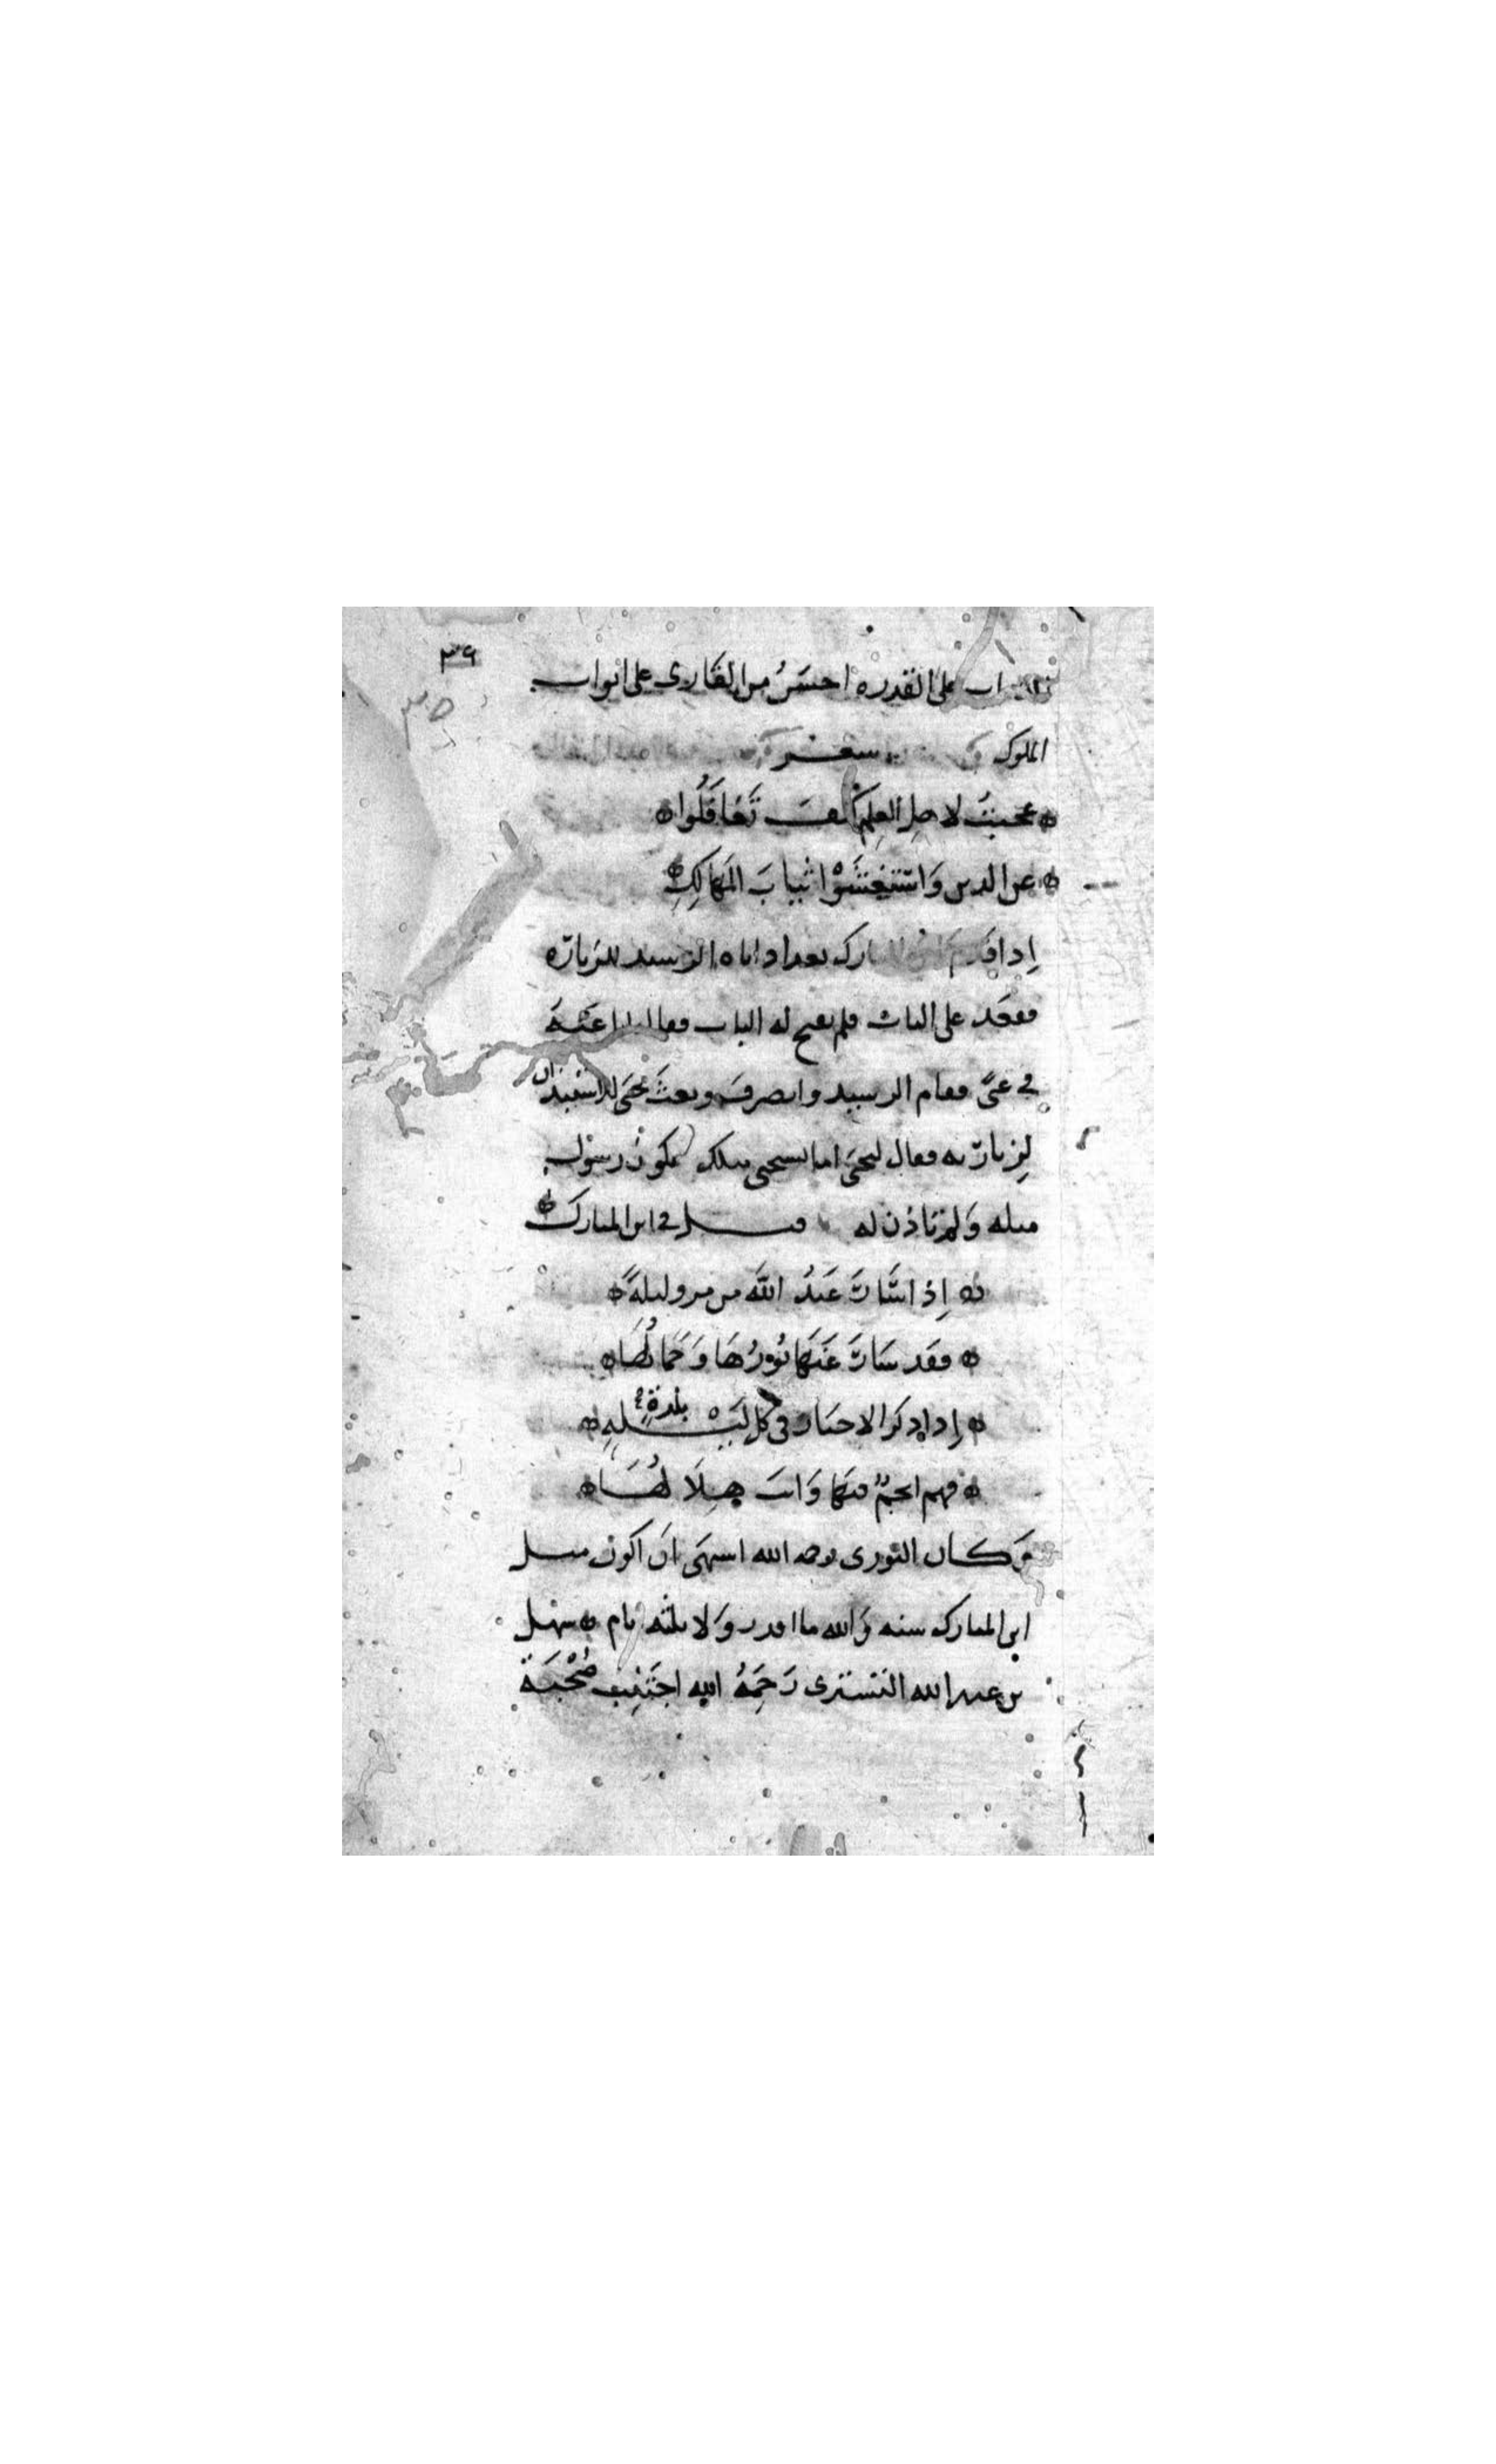 ٣٦
٣٥
الذباب على القذره احسَنُ من القارى على ابواب
الملوك شعر
عجبتُ لاهل العِلم كيف تَغافَلُوا
عن الدين وَاستَغشَوْا ثيابَ المَهالِكِ
اذا قدم ابن المبارك بغداد اتاه الرشيد للزيارَه
فقعَد على الباب فلم يفتح له الباب فقال
في غنىً فقام الرشيد وانصرفَ وبعثَ يحيَى ليستئذن
لِزيارَته فقال ليحيَى اما يستحى مثلك يكون رسول
مثله وَلم تاذن له قيل في ابن المبارك
إذا سَارَ عَبدُ الله من مرو ليلةً
فقَد سَارَ عَنهَا نُورُهَا وَجَمالُهَا
إذا ذكر الاحبار فى كل ليلهٍ
بلدةٍ
فهم انجمٌ فيهَا وَانتَ هِلَالُهَا
وَكان الثورى يرحمه الله اشتهَى انَ اكون مثل
ابن المبارك سنه وَالله ما اقدر وَلا ثلثه ايام سهل
بن عبد الله التسترى رَحِمَهُ الله اجتَنِب صُحْبَةَ